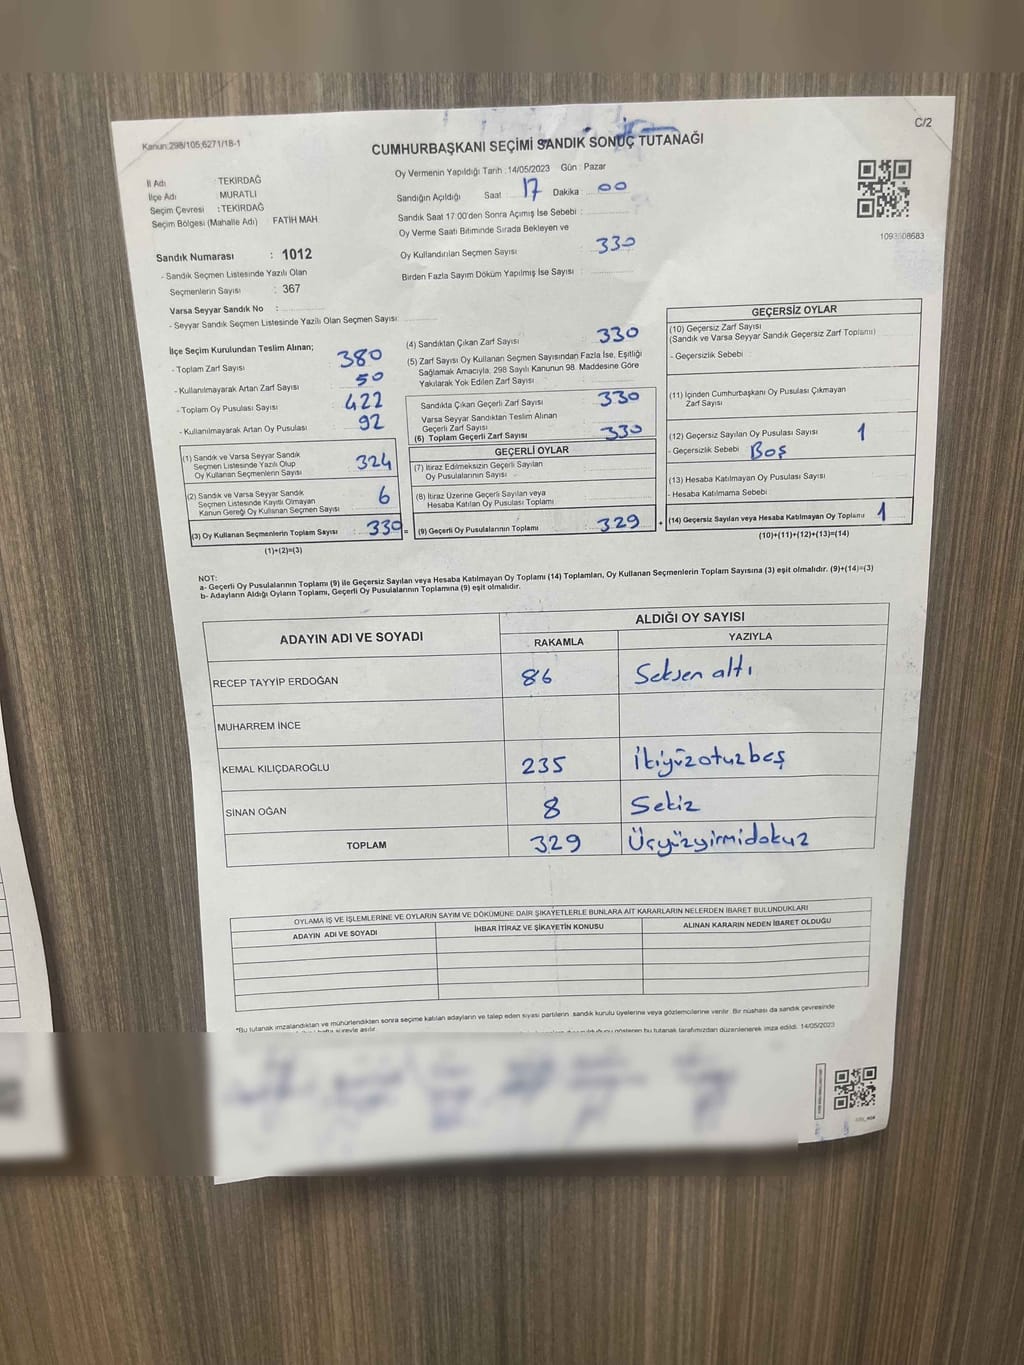 C/2
Kanun:298/105,6271/18-1
CUMHURBAŞKANI SEÇİMİ SANDIK SONUÇ TUTANAĞI
Oy Vermenin Yapıldığı Tarih :14/05/2023 Gün : Pazar
İl Adı : TEKİRDAĞ
İlçe Adı : MURATLI
Seçim Çevresi : TEKİRDAĞ
Seçim Bölgesi (Mahalle Adı) FATİH MAH.
Sandığın Açıldığı Saat 17 Dakika 00
Sandık Saat 17:00'den Sonra Açımış İse Sebebi :
Oy Verme Saati Bitiminde Sırada Bekleyen ve
Oy Kullandırılan Seçmen Sayısı : 330
Birden Fazla Sayım Döküm Yapılmış İse Sayısı :
Sandık Numarası : 1012
- Sandık Seçmen Listesinde Yazılı Olan
Seçmenlerin Sayısı : 367
Varsa Seyyar Sandık No :
- Seyyar Sandık Seçmen Listesinde Yazılı Olan Seçmen Sayısı:
İlçe Seçim Kurulundan Teslim Alınan;
- Toplam Zarf Sayısı : 380
- Kullanılmayarak Artan Zarf Sayısı : 50
- Toplam Oy Pusulası Sayısı : 422
- Kullanılmayarak Artan Oy Pusulası : 92
(1) Sandık ve Varsa Seyyar Sandık
Seçmen Listesinde Yazılı Olup
Oy Kullanan Seçmenlerin Sayısı : 324
(2) Sandık ve Varsa Seyyar Sandık
Seçmen Listesinde Kayıtlı Olmayan
Kanun Gereği Oy Kullanan Seçmen Sayısı : 6
(3) Oy Kullanan Seçmenlerin Toplam Sayısı : 330 =
(1)+(2)=(3)
(4) Sandıktan Çıkan Zarf Sayısı : 330
(5) Zarf Sayısı Oy Kullanan Seçmen Sayısından Fazla İse, Eşitliği
Sağlamak Amacıyla, 298 Sayılı Kanunun 98. Maddesine Göre
Yakılarak Yok Edilen Zarf Sayısı :
Sandıkta Çıkan Geçerli Zarf Sayısı : 330
Varsa Seyyar Sandıktan Teslim Alınan
Geçerli Zarf Sayısı :
(6) Toplam Geçerli Zarf Sayısı : 330
GEÇERLİ OYLAR
(7) İtiraz Edilmeksizin Geçerli Sayılan
Oy Pusulalarının Sayısı :
(8) İtiraz Üzerine Geçerli Sayılan veya
Hesaba Katılan Oy Pusulası Toplamı :
(9) Geçerli Oy Pusulalarının Toplamı : 329 +
GEÇERSİZ OYLAR
(10) Geçersiz Zarf Sayısı
(Sandık ve Varsa Seyyar Sandık Geçersiz Zarf Toplamı)
- Geçersizlik Sebebi :
(11) İçinden Cumhurbaşkanı Oy Pusulası Çıkmayan
Zarf Sayısı :
(12) Geçersiz Sayılan Oy Pusulası Sayısı : 1
- Geçersizlik Sebebi : Boş
(13) Hesaba Katılmayan Oy Pusulası Sayısı :
- Hesaba Katılmama Sebebi :
(14) Geçersiz Sayılan veya Hesaba Katılmayan Oy Toplamı : 1
(10)+(11)+(12)+(13)=(14)
NOT:
a- Geçerli Oy Pusulalarının Toplamı (9) ile Geçersiz Sayılan veya Hesaba Katılmayan Oy Toplamı (14) Toplamları, Oy Kullanan Seçmenlerin Toplam Sayısına (3) eşit olmalıdır. (9)+(14)=(3)
b- Adayların Aldığı Oyların Toplamı, Geçerli Oy Pusulalarının Toplamına (9) eşit olmalıdır.
ADAYIN ADI VE SOYADI ALDIĞI OY SAYISI
RAKAMLA YAZIYLA
RECEP TAYYİP ERDOĞAN 86 Seksen altı
MUHARREM İNCE
KEMAL KILIÇDAROĞLU 235 İkiyüzotuzbeş
SİNAN OĞAN 8 Sekiz
TOPLAM 329 Üçyüzyirmidokuz
OYLAMA İŞ VE İŞLEMLERİNE VE OYLARIN SAYIM VE DÖKÜMÜNE DAİR ŞİKAYETLERLE BUNLARA AİT KARARLARIN NELERDEN İBARET BULUNDUKLARI
ADAYIN ADI VE SOYADI İHBAR İTİRAZ VE ŞİKAYETİN KONUSU ALINAN KARARIN NEDEN İBARET OLDUĞU
*Bu tutanak imzalandıktan ve mühürlendikten sonra seçime katılan adayların ve talep eden siyasi partilerin sandık kurulu üyelerine veya gözlemcilerine verilir. Bir nüshası da sandık çevresinde
bu tutanak tarafımızdan düzenlenerek imza edildi. 14/05/2023